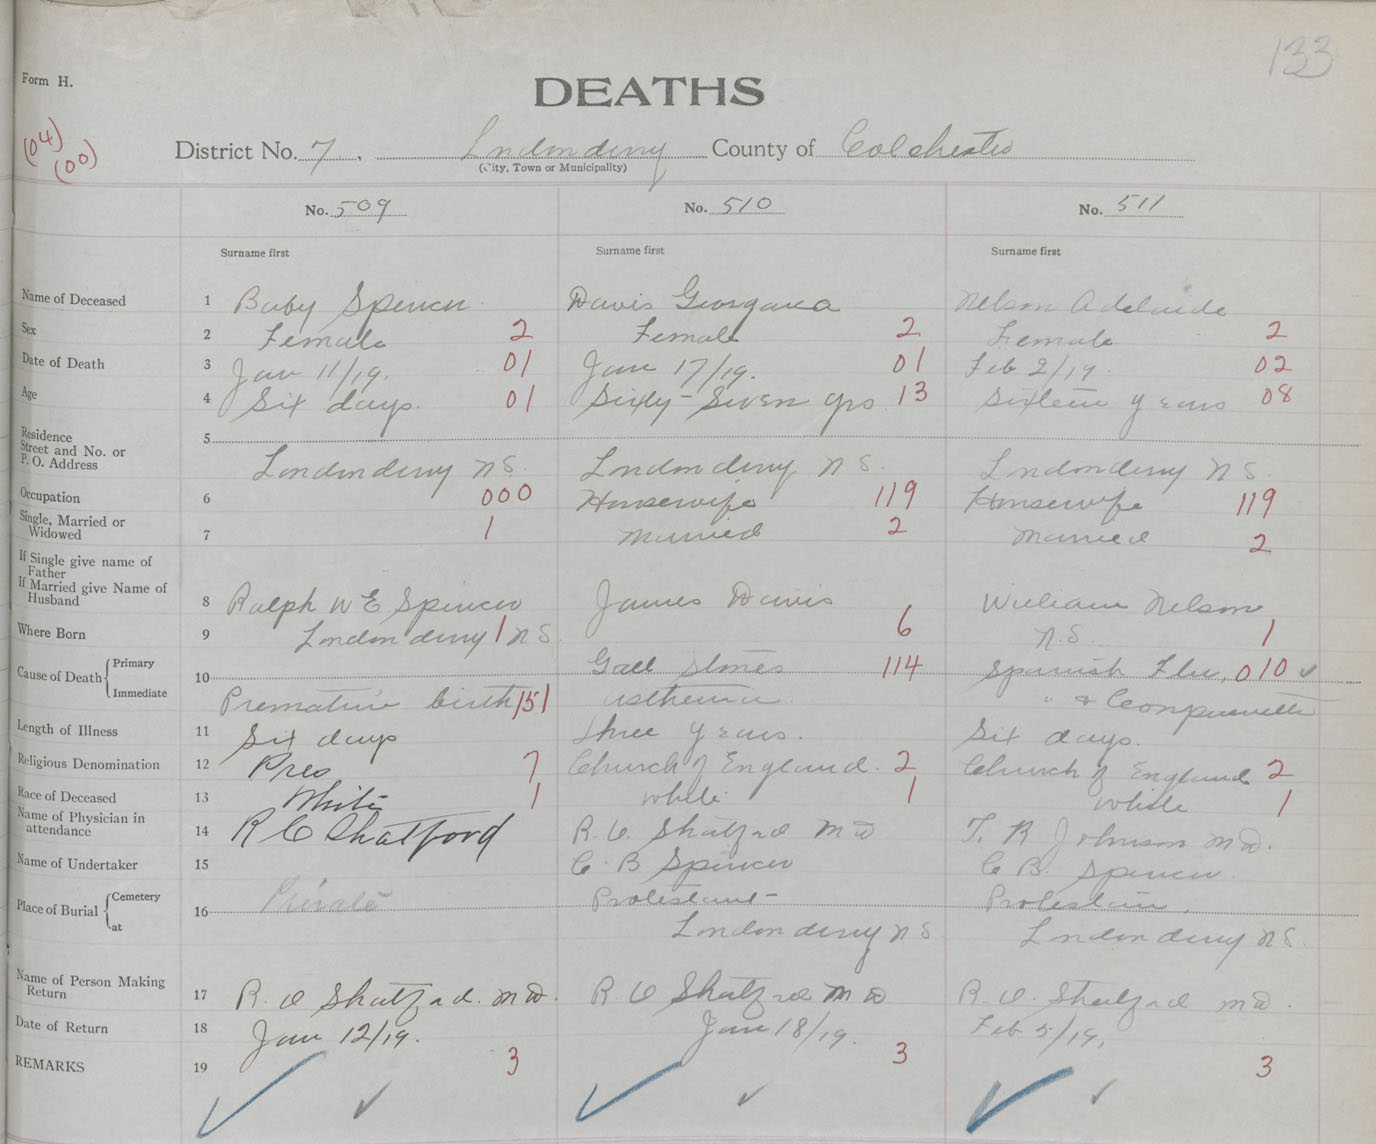 133
Form H.
DEATHS
(04)
(00)
District No. 7. Londonderry County of Colchester
(City, Town or Municipality)
No. 509 No. 510 No. 511
Surname first Surname first Surname first
Name of Deceased 1 Baby Spencer Davis Georgana Nelson Adelaide
Sex 2 Female 2 Female 2 Female 2
Date of Death 3 Jan 11/19. 01 Jan 17/19. 01 Feb 2/19 02
Age 4 Six days. 01 Sixty-Seven yrs. 13 Sixteen years 08
Residence
Street and No. or
P. O. Address
5 Londonderry N S. Londonderry N S. Londonderry N S.
Occupation 6 000 Housewife 119 Housewife 119
Single, Married or
Widowed
7 1 Married 2 Married 2
If Single give name of
Father
If Married give Name of
Husband
8 Ralph W E Spencer James Davis William Nelson
Where Born 9 Londonderry 1 N S. 6 N.S. 1
Cause of Death { Primary
Immediate
10 Gall Stones 114 Spanish Flu, 010 ✓
Premature birth 151 asthenia " &
Length of Illness 11 Six days three years. Six days.
Religious Denomination 12 Pres 7 Church of England. 2 Church of England 2
Race of Deceased 13 White 1 White 1 White 1
Name of Physician in
attendance
14 R C Shatford R. C. Shatford M D T. R Johnson M D.
Name of Undertaker 15 C. B Spencer C B. Spencer.
Place of Burial { Cemetery
at
16 Private Protestant Protestant
Londonderry N S Londonderry N S.
Name of Person Making
Return
17 R. C Shatford. M D. R C Shatford M D R. C. Shatford M D.
Date of Return 18 Jan 12/19. Jan 18/19. Feb 5/19.
REMARKS 19 3 3 3
✓ ✓ ✓ ✓ ✓ ✓